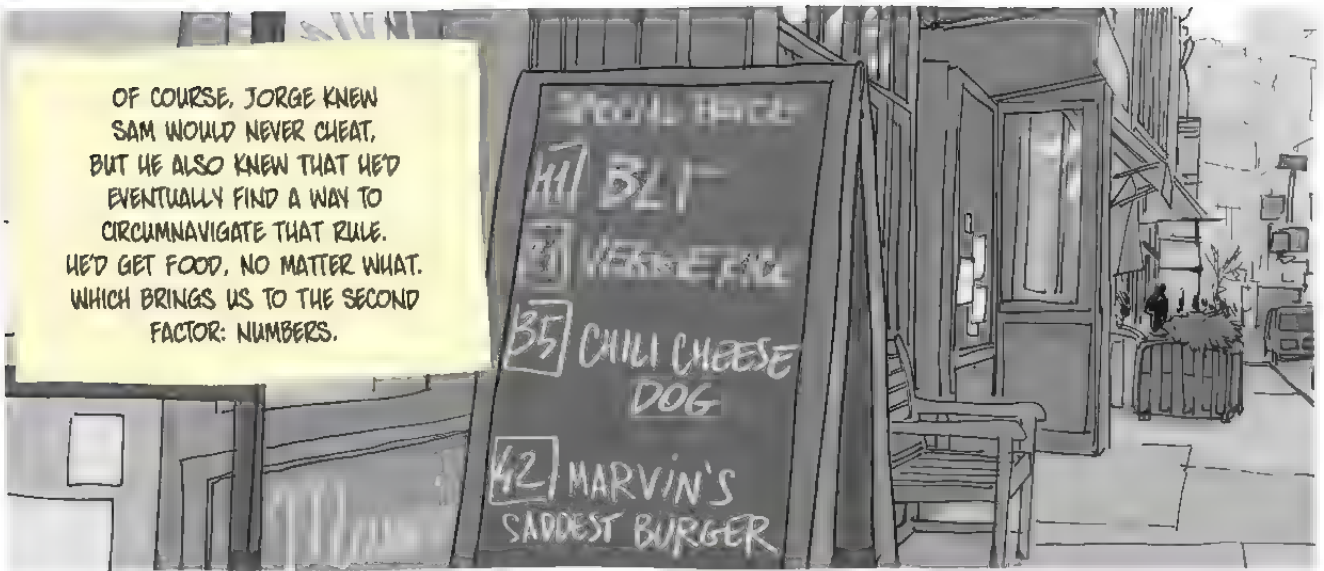 OF COURSE, JORGE KNEW
SAM WOULD NEVER CHEAT,
BUT HE ALSO KNEW THAT HE'D
EVENTUALLY FIND A WAY TO
CIRCUMNAVIGATE THAT RULE.
HE'D GET FOOD, NO MATTER WHAT.
WHICH BRINGS US TO THE SECOND
FACTOR: NUMBERS.
BLT
35 CHILI CHEESE
DOG
42 MARVIN'S
SADDEST BURGER